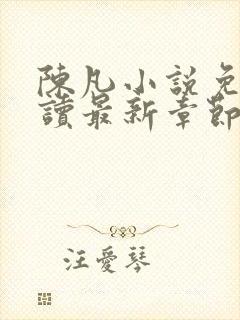 陳凡小說免
讀最新章節
汪愛琴